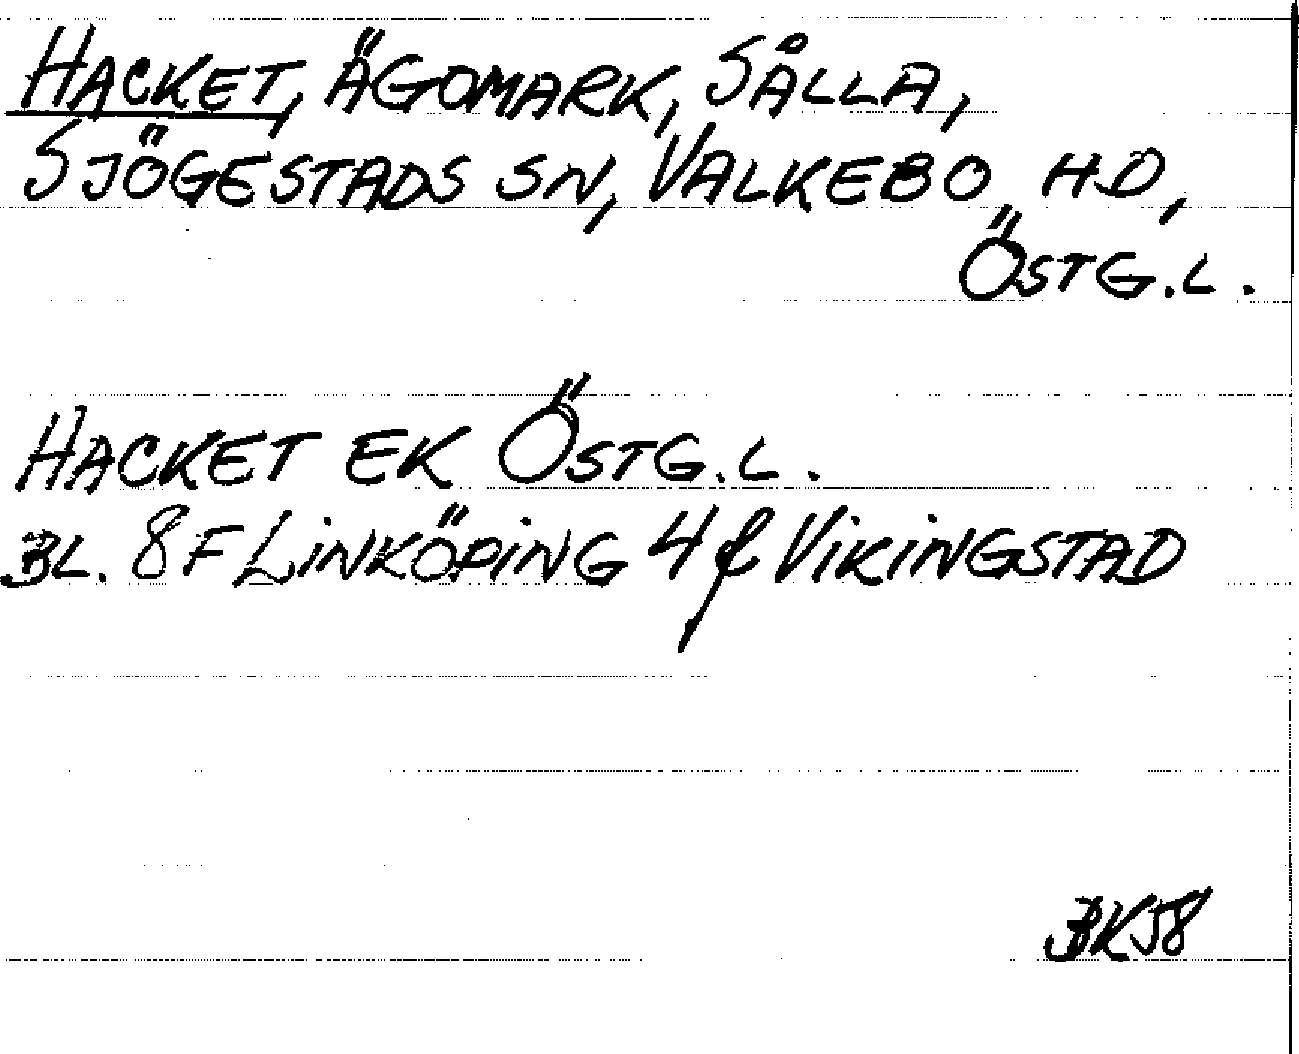 HACKET, ÄGOMARK, SÅLLA,
SJÖGESTADS SN, VALKEBO HD,
ÖSTG.L.
HACKET EK ÖSTG.L.
BL. 8F LINKÖPING 4 f VIKINGSTAD
BK58